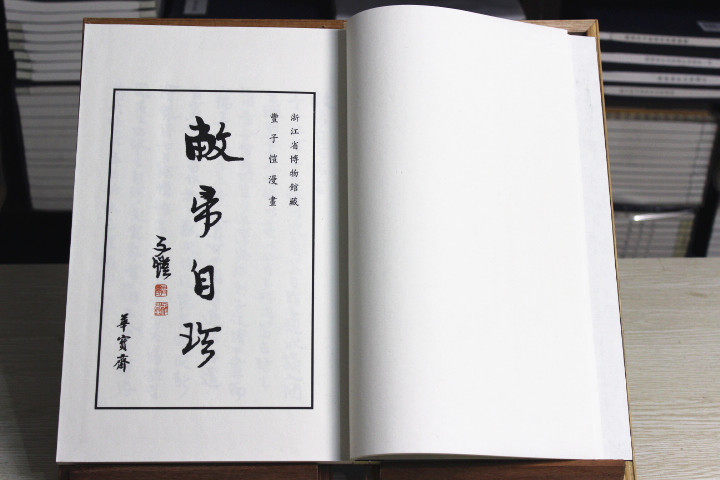 浙江省博物館藏
豐子愷漫畫
敝帚自珍
子愷
華寶齋